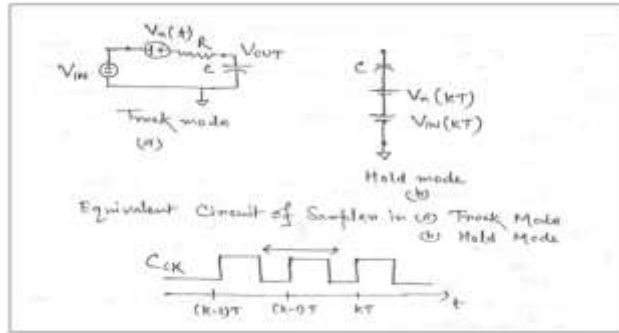 Vn(t)
R
VOUT
C
VIN
Track mode
(a)
C
Vn(KT)
VIN(KT)
Hold mode
(b)
Equivalent Circuit of Sampler in (a) Track Mode
(b) Hold Mode
CCK
(k-2)T
(k-1)T
KT
t